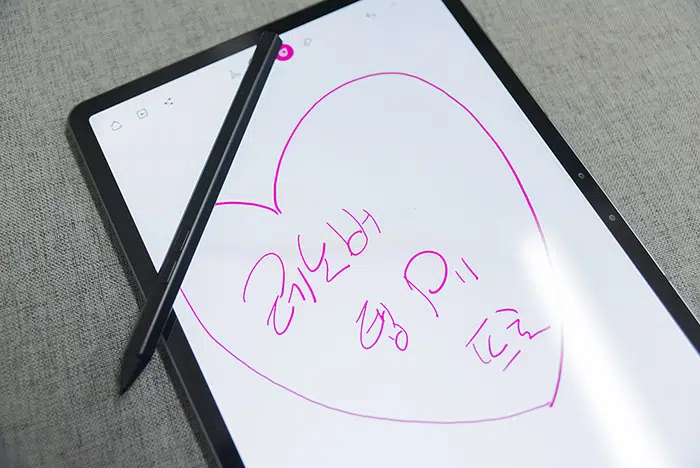 레노버
탭 P11
프로